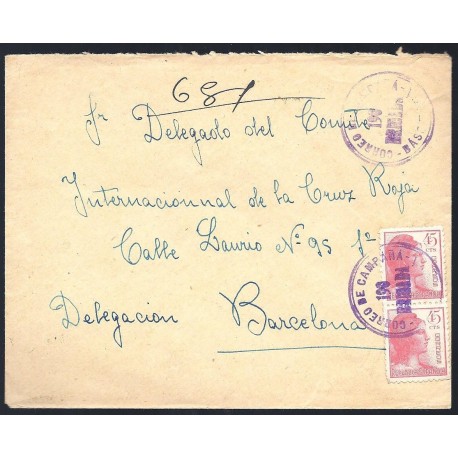 681
Sr Delegado del Comite
Internacional de la Cruz Roja
Calle Laurio Nº 95 1º
Delegacion Barcelona
CORREO DE CAMPAÑA
BRIGADA
CORREO DE CAMPAÑA
BRIGADA
45
CTS
45
CTS